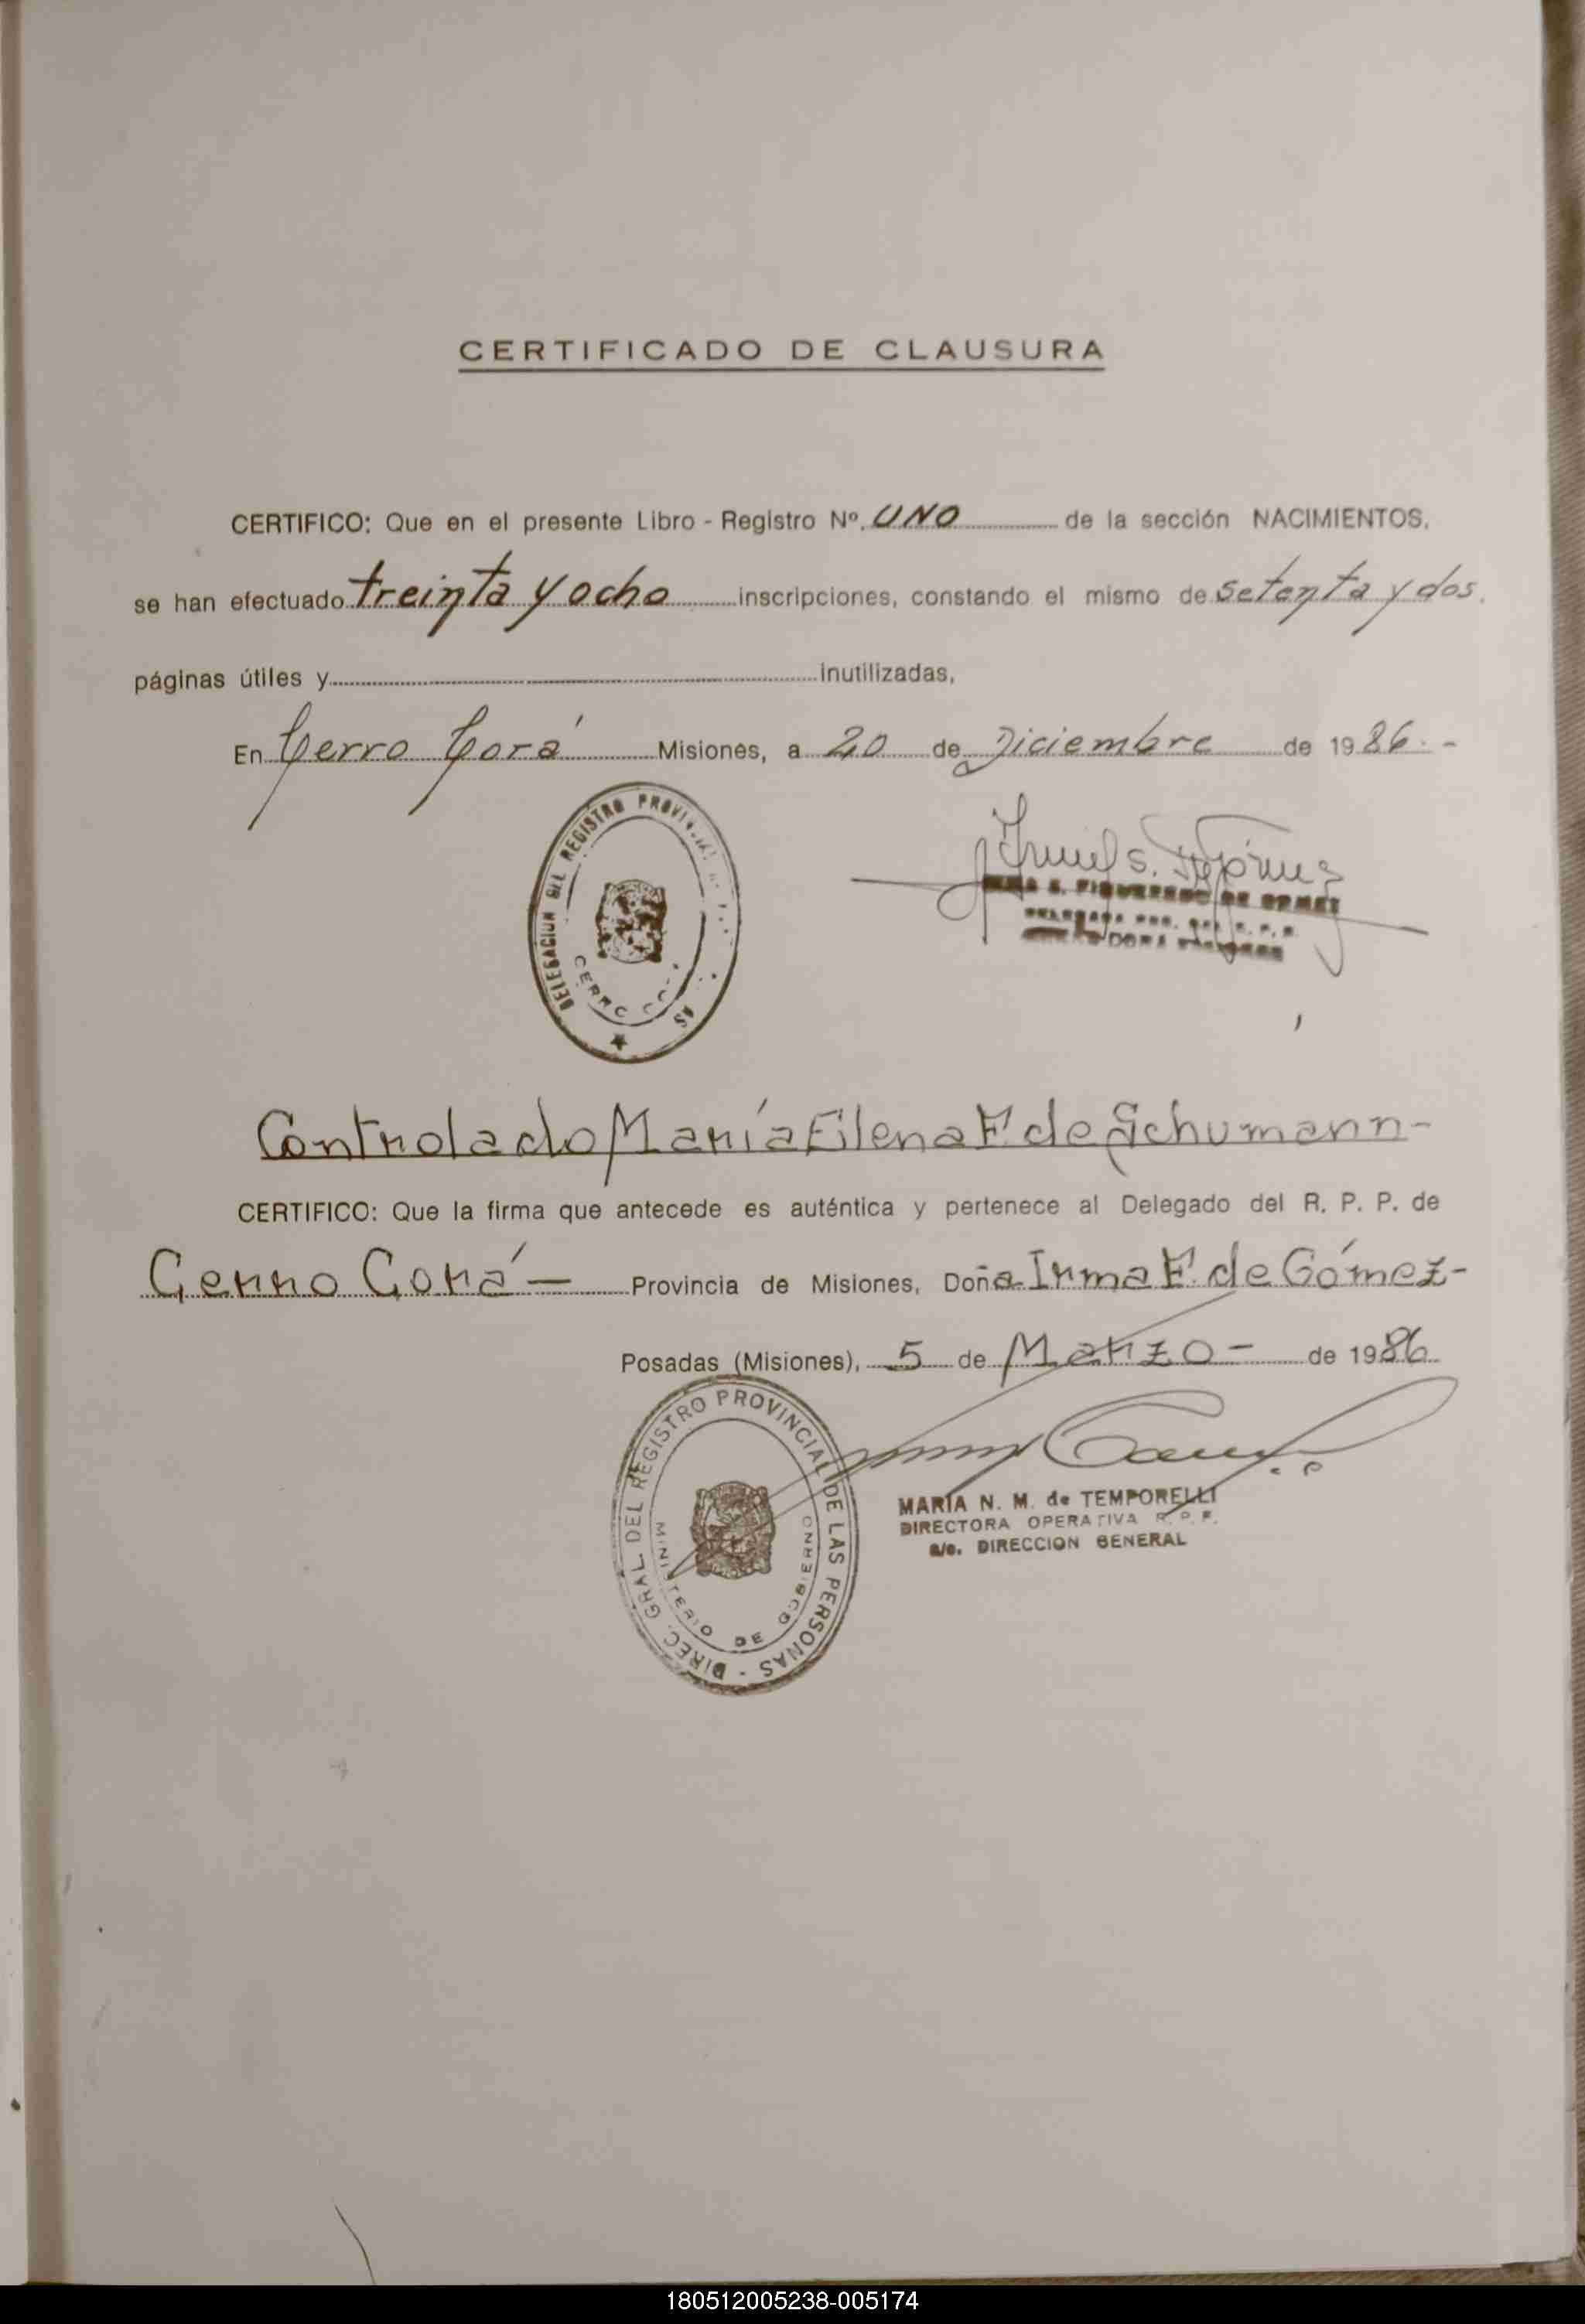 CERTIFICADO DE CLAUSURA
CERTIFICO: Que en el presente Libro - Registro Nº. UNO de la sección NACIMIENTOS,
se han efectuado treinta y ocho inscripciones, constando el mismo de setenta y dos.
páginas útiles y inutilizadas,
En Cerro Corá Misiones, a 20 de Diciembre de 1986.-
DELEGACION DEL REGISTRO
CERRO
Controlado María Elena F. de Schumann-
CERTIFICO: Que la firma que antecede es auténtica y pertenece al Delegado del R. P. P. de
Cerro Corá— Provincia de Misiones, Doña Irma F. de Gómez-
Posadas (Misiones), 5 de Marzo- de 1986
DIREC. GRAL. DEL REGISTRO PROVINCIAL DE LAS PERSONAS -
MINISTERIO DE GOBIERNO
MARIA N. M. de TEMPORELLI
DIRECTORA OPERATIVA R. P. P.
a/c. DIRECCION GENERAL
180512005238-005174